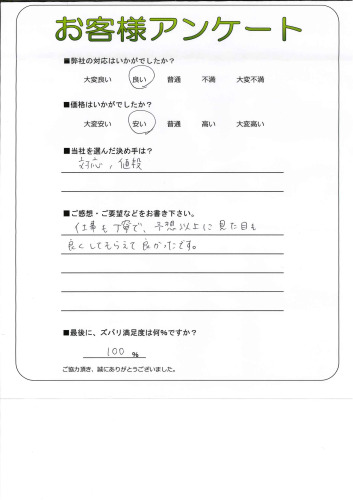 お客様アンケート
■弊社の対応はいかがでしたか？
大変良い 良い 普通 不満 大変不満
■価格はいかがでしたか？
大変安い 安い 普通 高い 大変高い
■当社を選んだ決め手は？
対応，値段
■ご感想・ご要望などをお書き下さい。
仕事も丁寧で、予想以上に見た目も
良くしてもらえて良かったです。
■最後に、ズバリ満足度は何%ですか？
100 %
ご協力頂き、誠にありがとうございました。